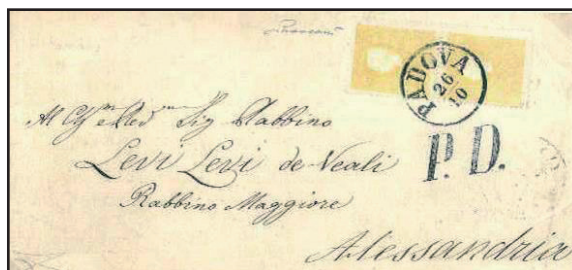 PADOVA
26
10
P. D.
Al Ch.mo e Rev.mo Sig Rabbino
Levi Levi de-Veali
Rabbino Maggiore
Alessandria